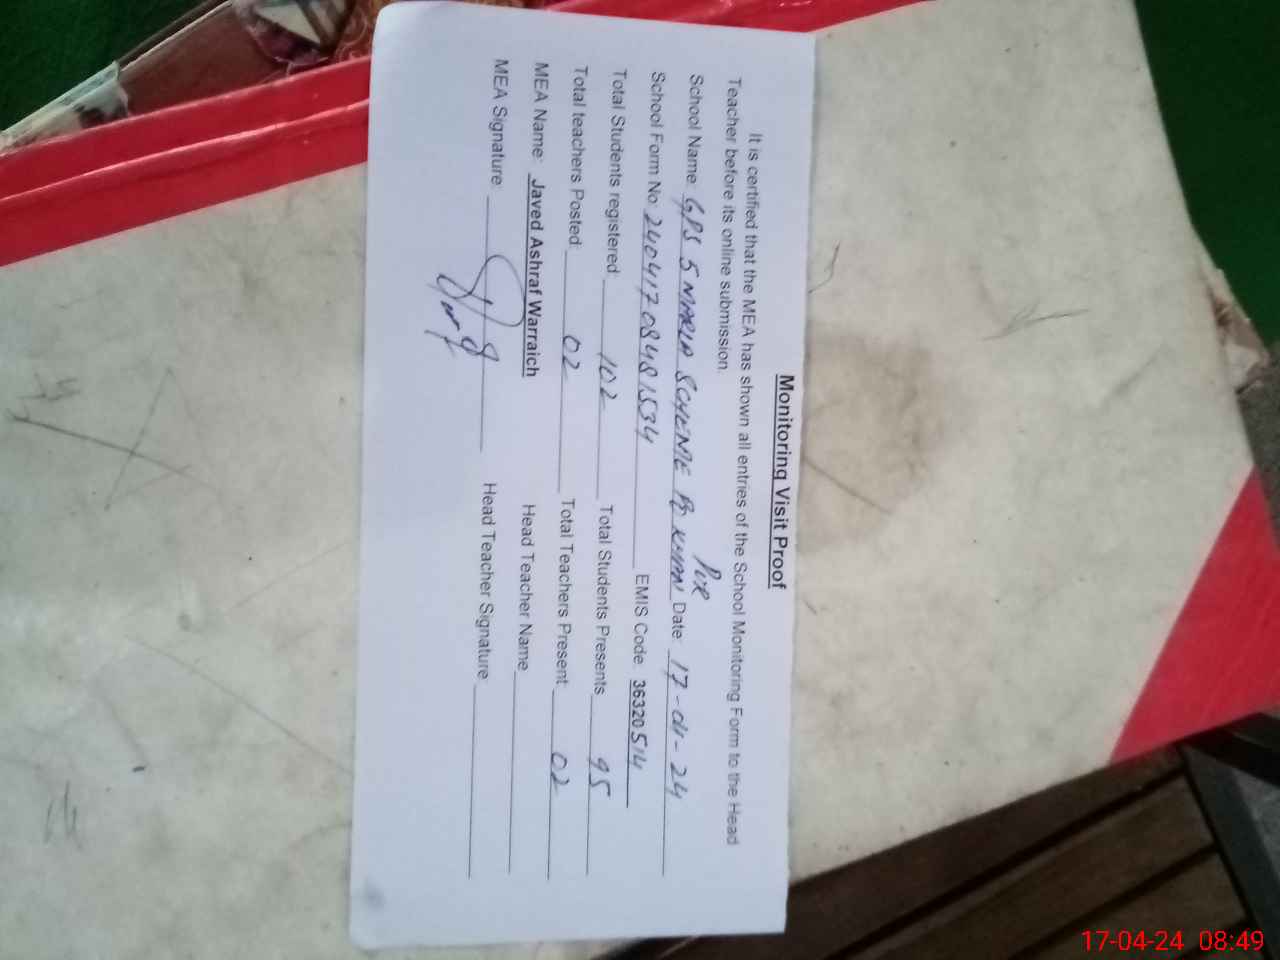 Monitoring Visit Proof
It is certified that the MEA has shown all entries of the School Monitoring Form to the Head
Teacher before its online submission.
Pur
School Name: GPS 5 MARLA SCHEME R Khan Date: 17-04-24
School Form No 24041708481534 EMIS Code: 36320514
Total Students registered: 102 Total Students Presents 95
Total teachers Posted: 02 Total Teachers Present 02
MEA Name: Javed Ashraf Warraich Head Teacher Name
MEA Signature: Head Teacher Signature
17-04-24 08:49